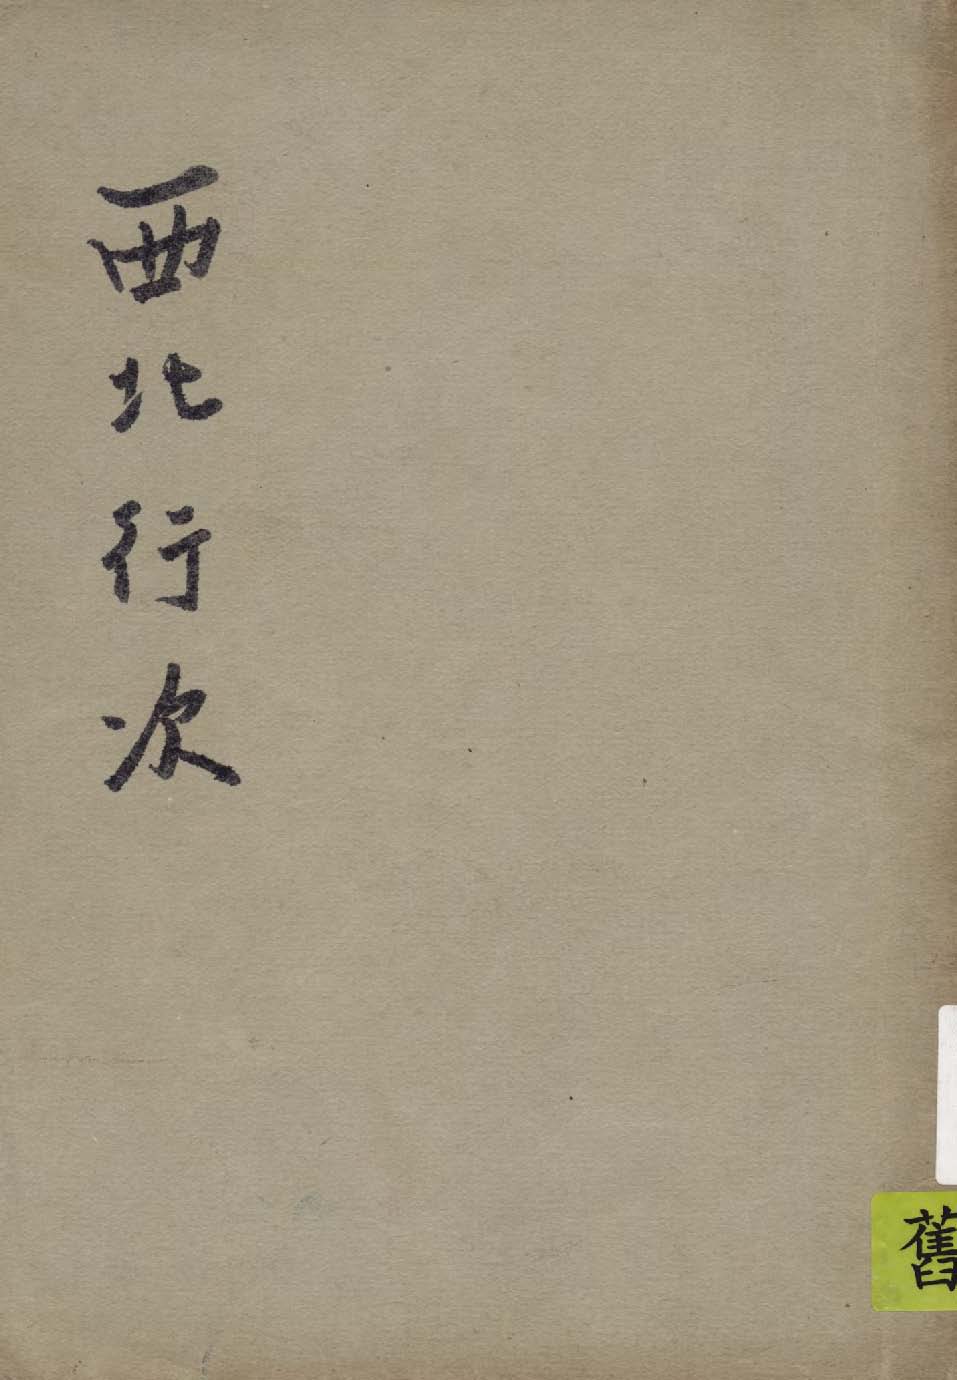 西北行次
舊